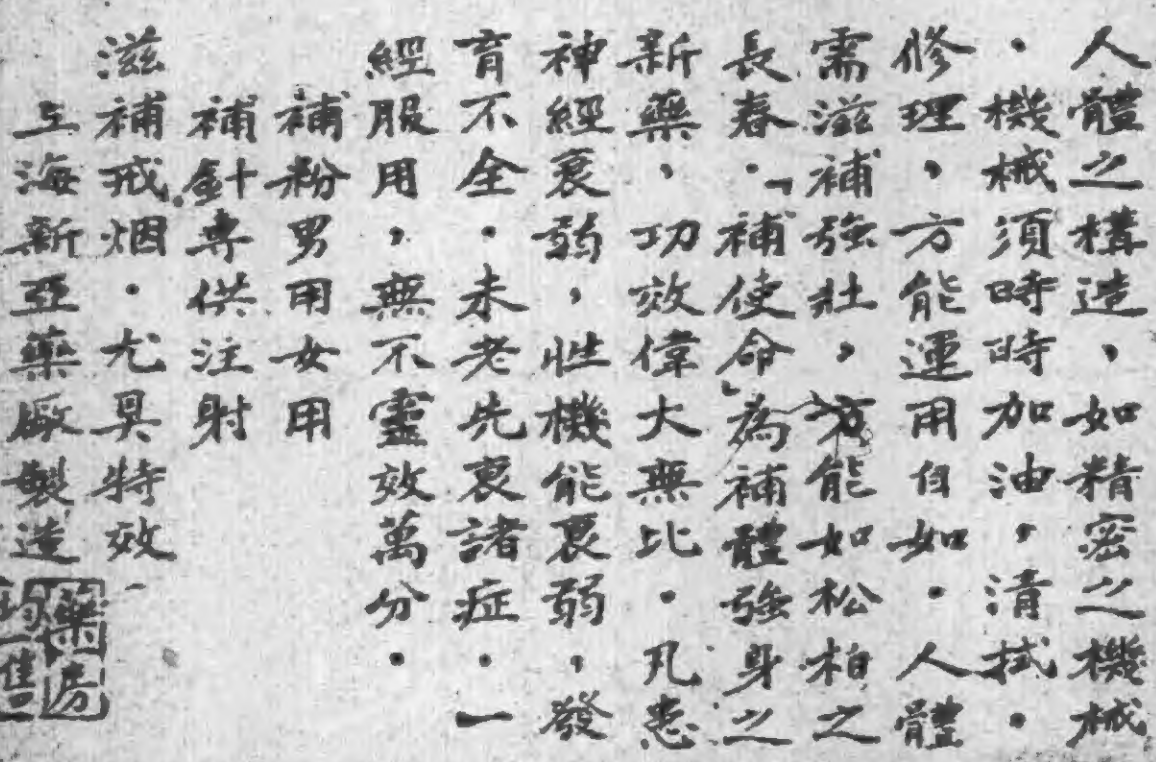 人體之構造，如精密之機械
・機械須時時加油，清拭・
修理，方能運用自如・人體
需滋補強壯，方能如松柏之
長春・「補使命」為補體強身之
新藥，功效偉大無比・凡患
神經衰弱，性機能衰弱，發
育不全・未老先衰諸症・一
經服用，無不靈效萬分・
補粉男用女用
補針專供注射
滋補戒烟・尤具特效
上海新亞藥廠製造
藥房
均售